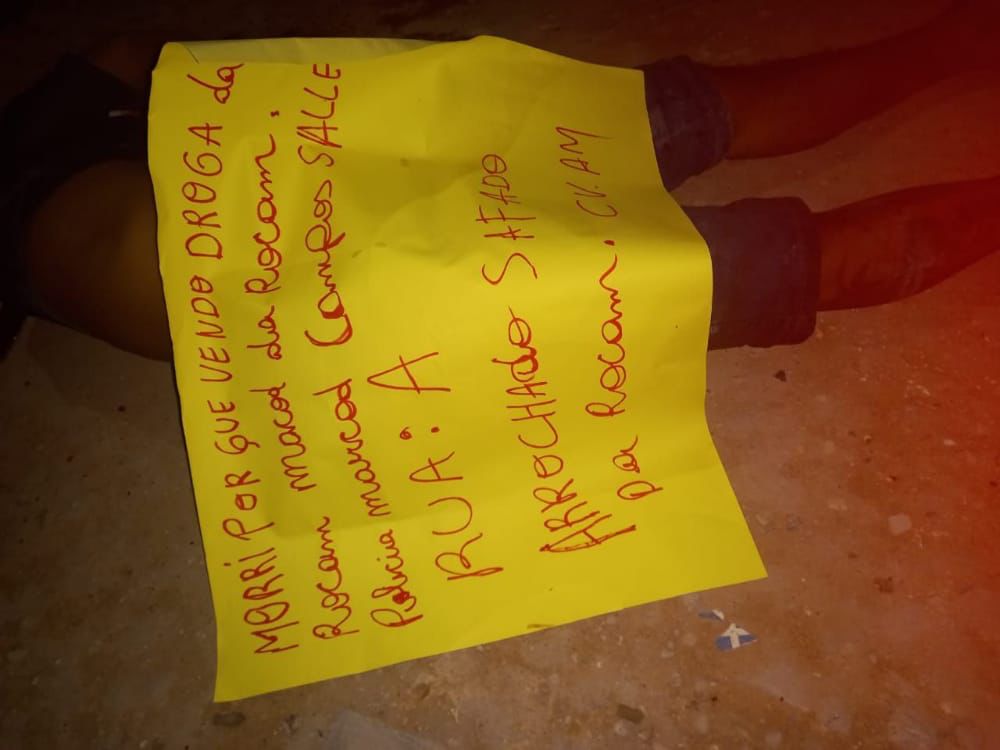 MORRI POR QUE VENDO DROGA da
Rocam macod da Rocam.
Policia marcod Campos SALLE
RUA: A
ARROCHADO SAFADO
Da Rocam. CV.AM